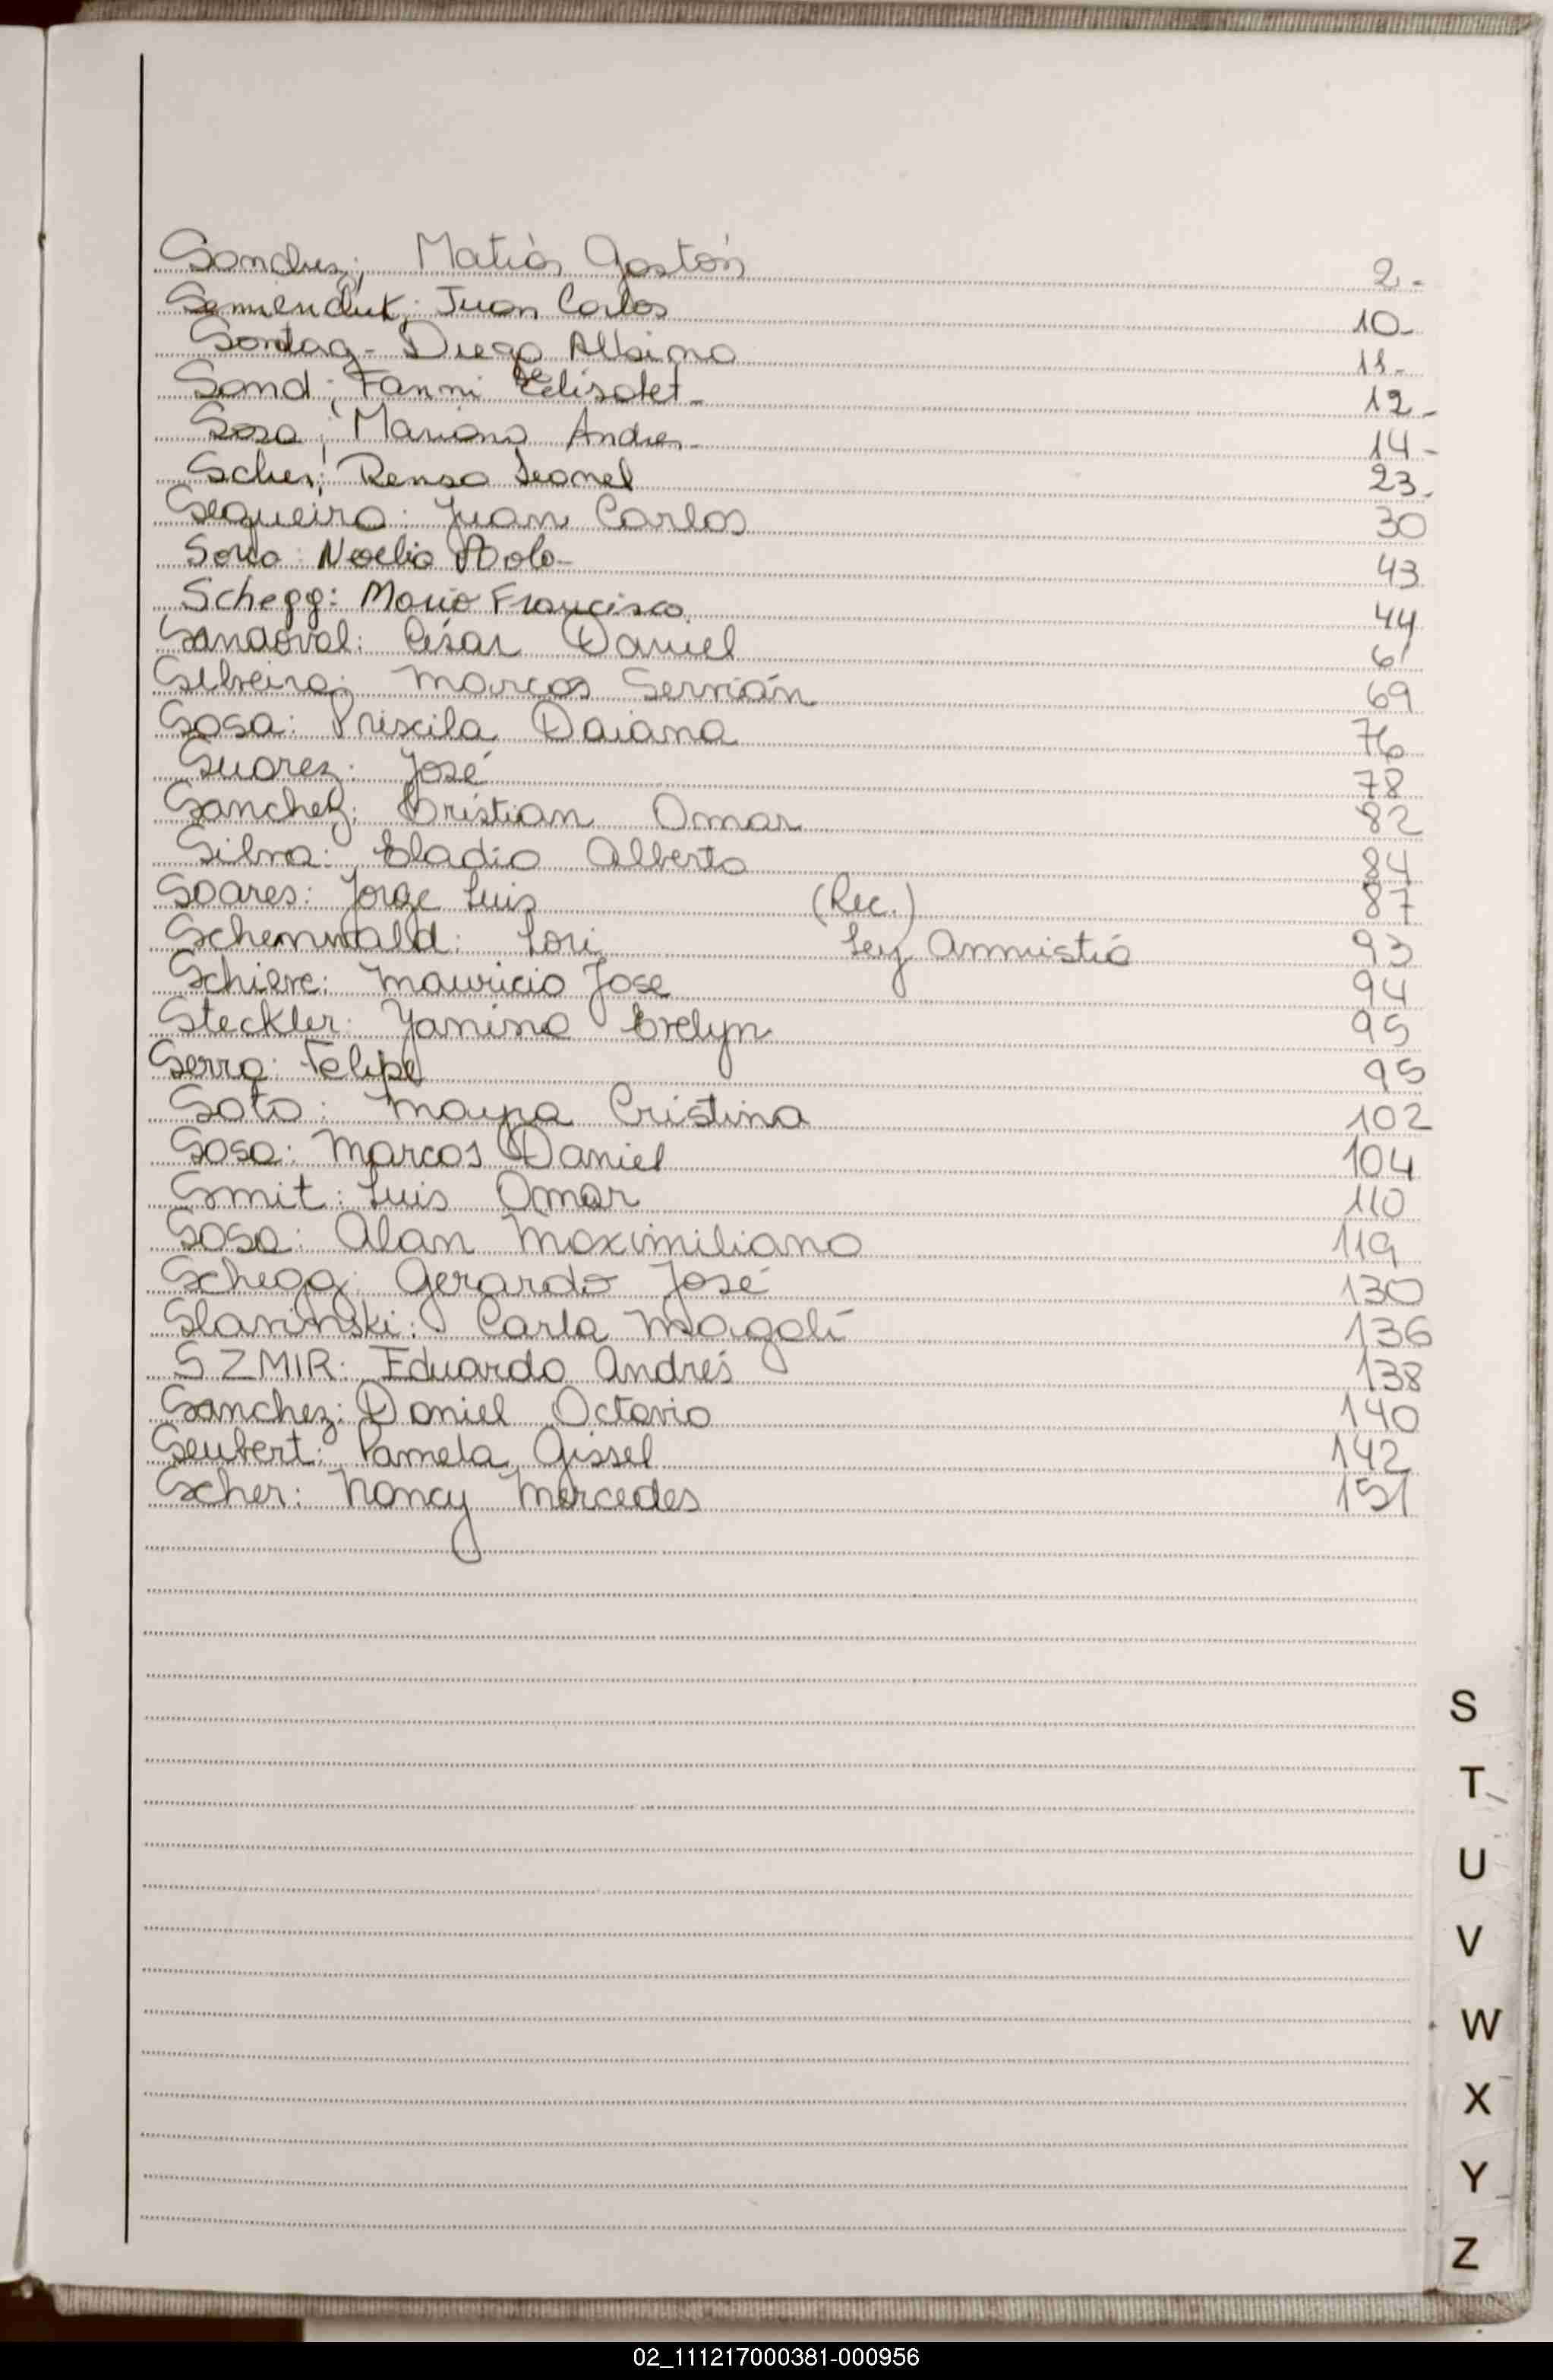 Sanchez; Matiás Gastón 2-
Semenchuk; Juan Carlos 10-
Sontag- Diego Albino 11-
Sand; Fanni Elisabet- 12-
Sosa; Mariano Andres- 14-
Scher; Renso Leonel 23.
Sequeira: Juan Carlos 30
Soria: Noelia 43
Schegg: Mario Francisco 44
Sandoval: César Daniel 61
Silveira: Marcos Germán 69
Sosa: Priscila Daiana 76
Suarez: José 78
Sanchez: Cristian Omar 82
Silva: Eladio Alberto 84
Soares: Jorge Luis (Rec.) 87
Schernwald: Lori Ley Amnistía 93
Schiere: Mauricio Jose 94
Steckler: Yanina Evelyn 95
Serra: Felipe 95
Soto: Mayra Cristina 102
Sosa: Marcos Daniel 104
Smit: Luis Omar 110
Sosa: Alan Maximiliano 119
Schegg: Gerardo José 130
Slavinski: Carla Magalí 136
SZMIR: Eduardo Andrés 138
Sanchez: Daniel Octavio 140
Seubert: Pamela Gissel 142
Scher: Nancy Mercedes 151
S
T
U
V
W
X
Y
Z
02_111217000381-000956